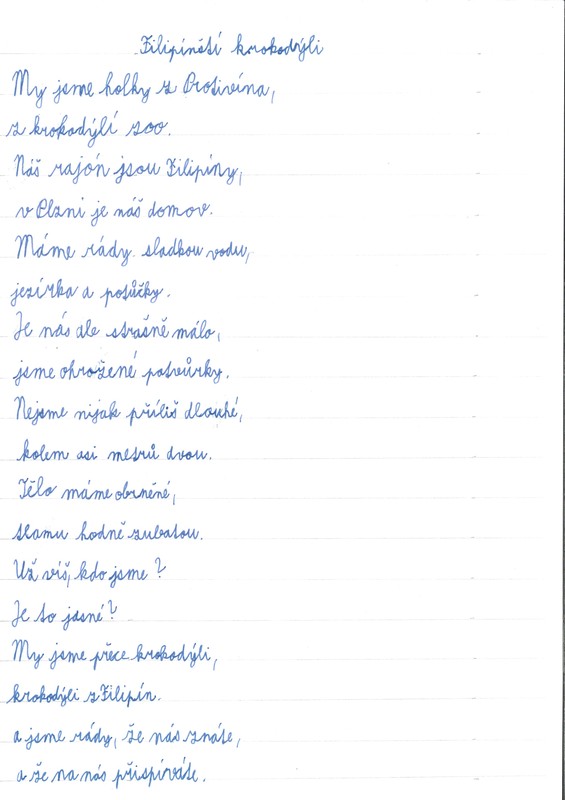 Filipínští krokodýli
My jsme holky z Protivína,
z krokodýlí zoo.
Náš rajón jsou Filipíny,
v Plzni je náš domov.
Máme rády sladkou vodu,
jezírka a potůčky.
Je nás ale strašně málo,
jsme ohrožené potvůrky.
Nejsme nijak příliš dlouhé,
kolem asi metrů dvou.
Tělo máme obrněné,
tlamu hodně zubatou.
Už víš, kdo jsme?
Je to jasné?
My jsme přece krokodýli,
krokodýli z Filipín.
a jsme rády, že nás znáte,
a že na nás přispíváte.